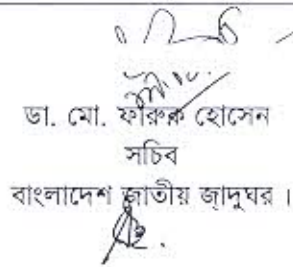 ডা. মো. ফারুক হোসেন
সচিব
বাংলাদেশ জাতীয় জাদুঘর ।